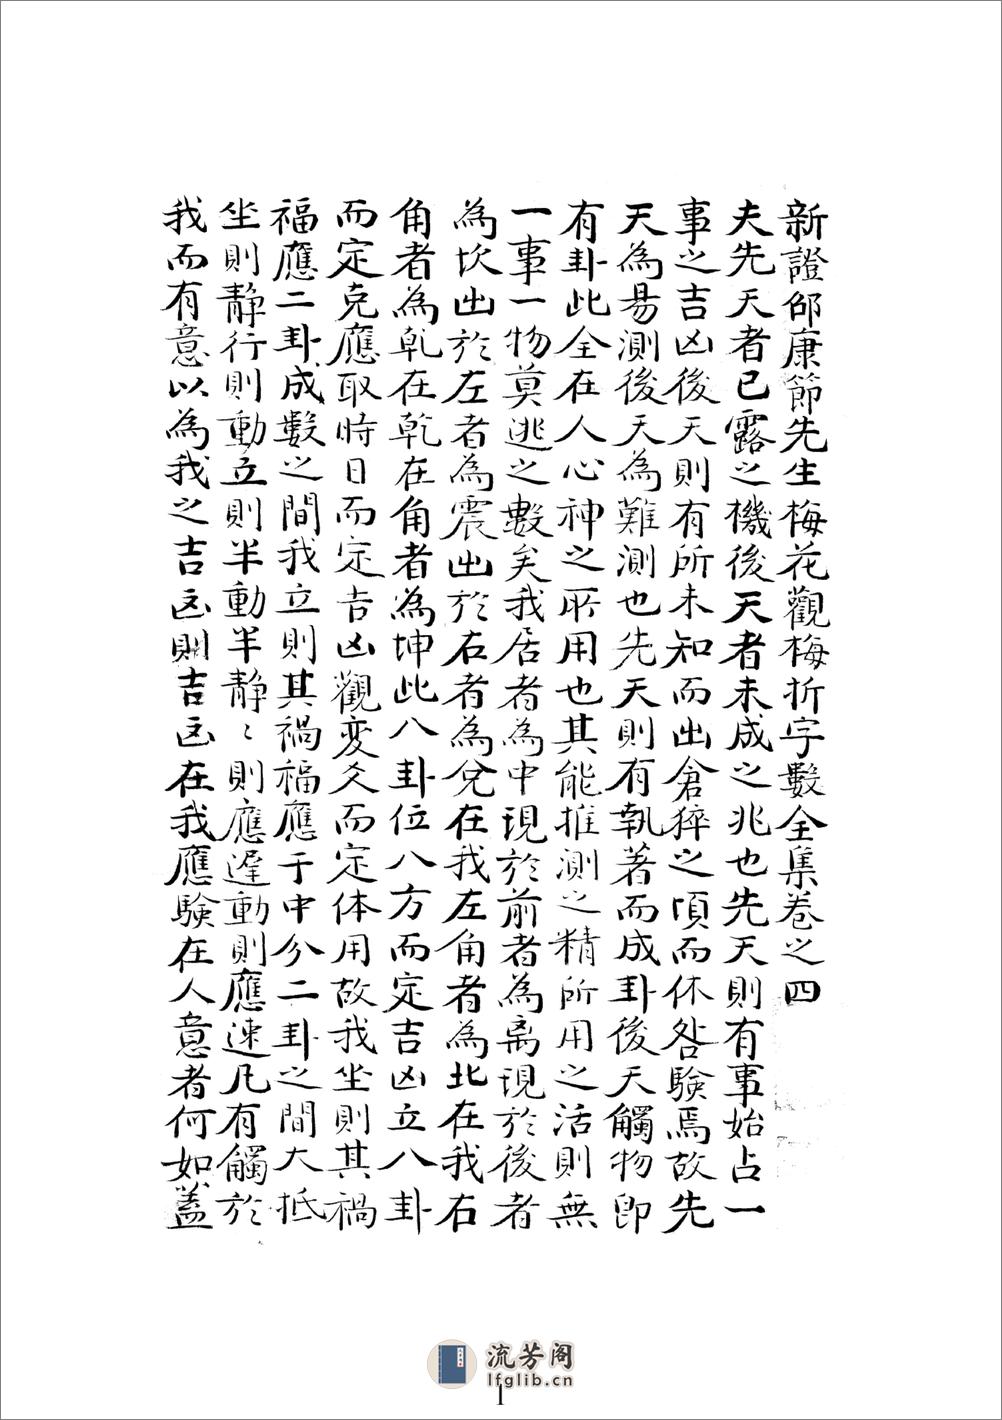 新證邵康節先生梅花觀梅折字數全集卷之四
夫先天者已露之機後天者未成之兆也先天則有事始占一
事之吉凶後天則有所未知而出倉猝之頃而休咎驗焉故先
天為易測後天為難測也先天則有執著而成卦後天觸物即
有卦此全在人心神之所用也其能推測之精所用之活則無
一事一物莫逃之數矣我居者為中現於前者為离現於後者
為坎出於左者為震出於右者為兌在我左角者為北在我右
角者為乹在乾在角者為坤此八卦位八方而定吉凶立八卦
而定克應取時日而定吉凶觀変爻而定体用故我坐則其禍
福應二卦成數之間我立則其禍福應于中分二卦之間大抵
坐則靜行則動立則半動半靜〻則應遲動則應速凡有觸於
我而有意以為我之吉凶則吉凶在我應驗在人意者何如蓋
流芳阁
lfglib.cn
1